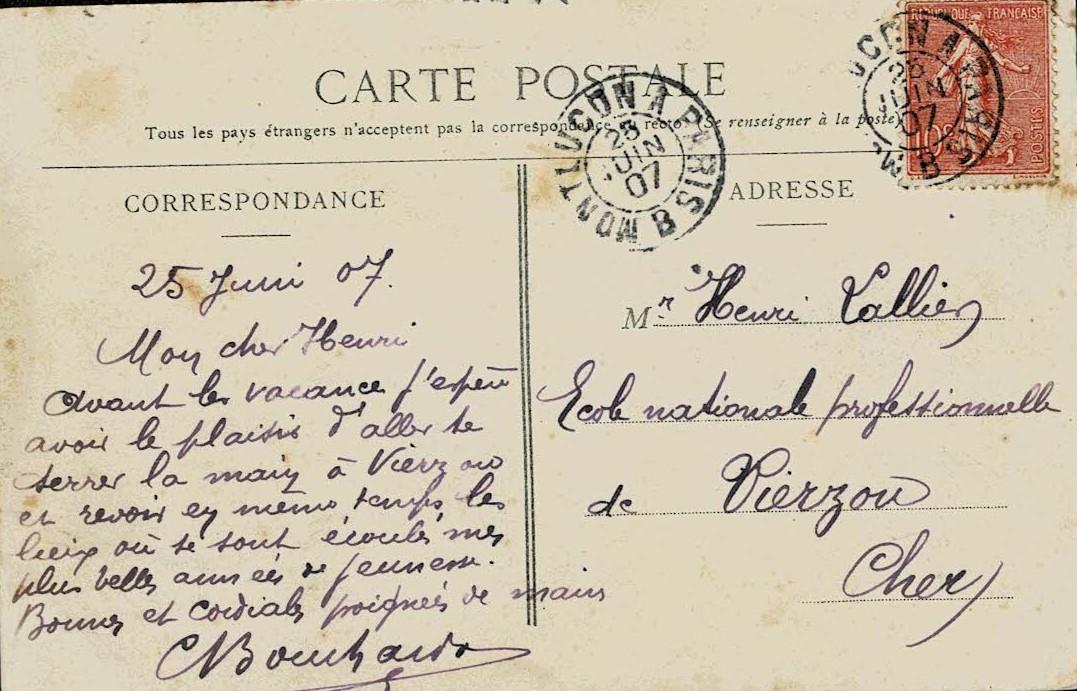 RÉPUBLIQUE FRANÇAISE
POSTES
CARTE POSTALE
Tous les pays étrangers n'acceptent pas la correspondance au recto (Se renseigner à la poste)
MONTLUCON A PARIS B
25
JUIN
07
LUCON A PARIS
JUIN
07
B
CORRESPONDANCE
25 Juin 07.
Mon cher Henri
Avant les vacance j'espère
avoir le plaisir d'aller te
serrer la main à Vierzon
et revoir en même temps les
lieux où se sont écoulés mes
plus belles années de jeunesse.
Bonnes et cordiales poignées de mains
ADRESSE
Mr. Henri Vallier
Ecole nationale professionnelle
de Vierzon
Cher